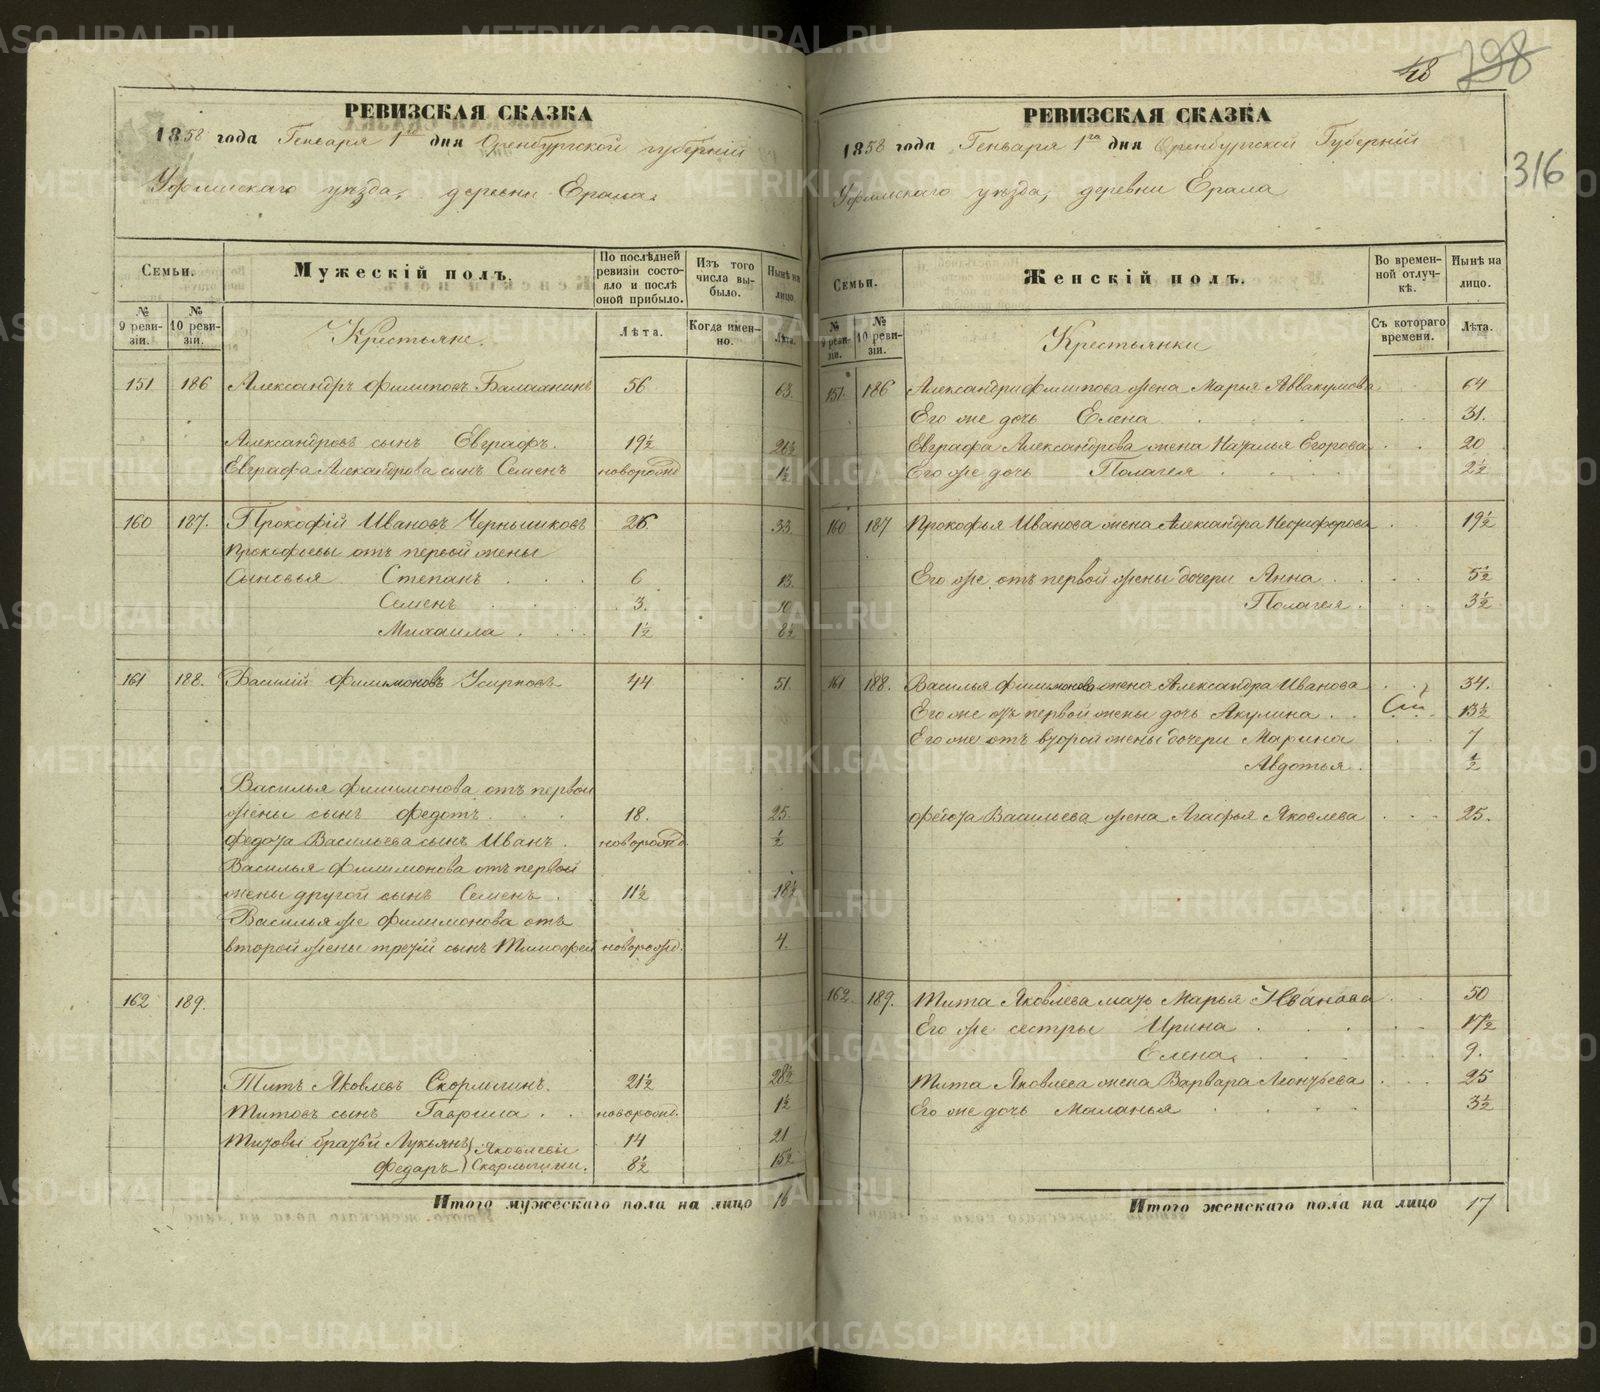 48 798
316
РЕВИЗСКАЯ СКАЗКА
1858 года Генваря 1го дня Оренбургской губерніи
Уфимскаго уѣзда, деревни Ерала.
Семьи.
Мужескій полъ.
По послѣдней ревизіи состояло и послѣ оной прибыло.
Изъ того числа выбыло.
Нынѣ на лицо.
№ 9 ревизіи.
№ 10 ревизіи.
Крестьяне.
Лѣта.
Когда именно.
Лѣта.
151 186 Александръ Филиповъ Балахнинъ 56 63.
Александровъ сынъ Евграфъ. 19½ 26½
Евграфа Александрова сынъ Семенъ новорожд 1½
160 187. Прокофій Ивановъ Чернышковъ 26. 33.
Прокофьевы отъ первой жены
Сыновья Степанъ 6 13.
Семенъ 3. 10
Михаила 1½ 8½
161 188. Василій Филимоновъ 44 51.
Василья Филимонова отъ первой
жены сынъ Федотъ 18. 25.
Федота Васильева сынъ Иванъ. новорожд. ½
Василья Филимонова отъ первой
жены другой сынъ Семенъ 11½ 18½
Василья же Филимонова отъ
второй жены третій сынъ Тимофей новорожд. 4.
162 189.
Титъ Яковлевъ Скорлыгинъ. 21½ 28½
Титовъ сынъ Гаврила новорожд. 1½
Титовы братьи Лукьянъ Яковлевы 14 21
Федаръ Скорлыгины. 8½ 15½
Итого мужескаго пола на лицо 16
РЕВИЗСКАЯ СКАЗКА
1858 года Генваря 1го дня Оренбургской Губерніи
Уфимскаго уѣзда, деревни Ерала
Семьи.
Женскій полъ.
Во временной отлучкѣ.
Нынѣ на лицо.
№ 9 ревизіи.
№ 10 ревизіи.
Крестьянки
Съ котораго времени.
Лѣта.
151. 186 Александра Филипова жена Марья Аввакумова 64
Его же дочь Елена 31.
Евграфа Александрова жена Наталья Егорова 20
Его же дочь Полагея 2½
160 187 Прокофья Иванова жена Александра Никифорова 19½
Его же отъ первой жены дочери Анна 5½
Полагея. 3½
161 188. Василья Филимонова жена Александра Иванова 34.
Его же отъ первой жены дочь Акулина 13½
Его же отъ второй жены дочери Марина 7
Авдотья. ½
Федота Васильева жена Агафья Яковлева 25.
162. 189. Тита Яковлева мать Марья Иванова 50
Его же сестры Ирина 17½
Елена. 9.
Тита Яковлева жена Варвара Леонтьева 25
Его же дочь Маланья 3½
Итого женскаго пола на лицо 17
METRIKI.GASO-URAL.RU